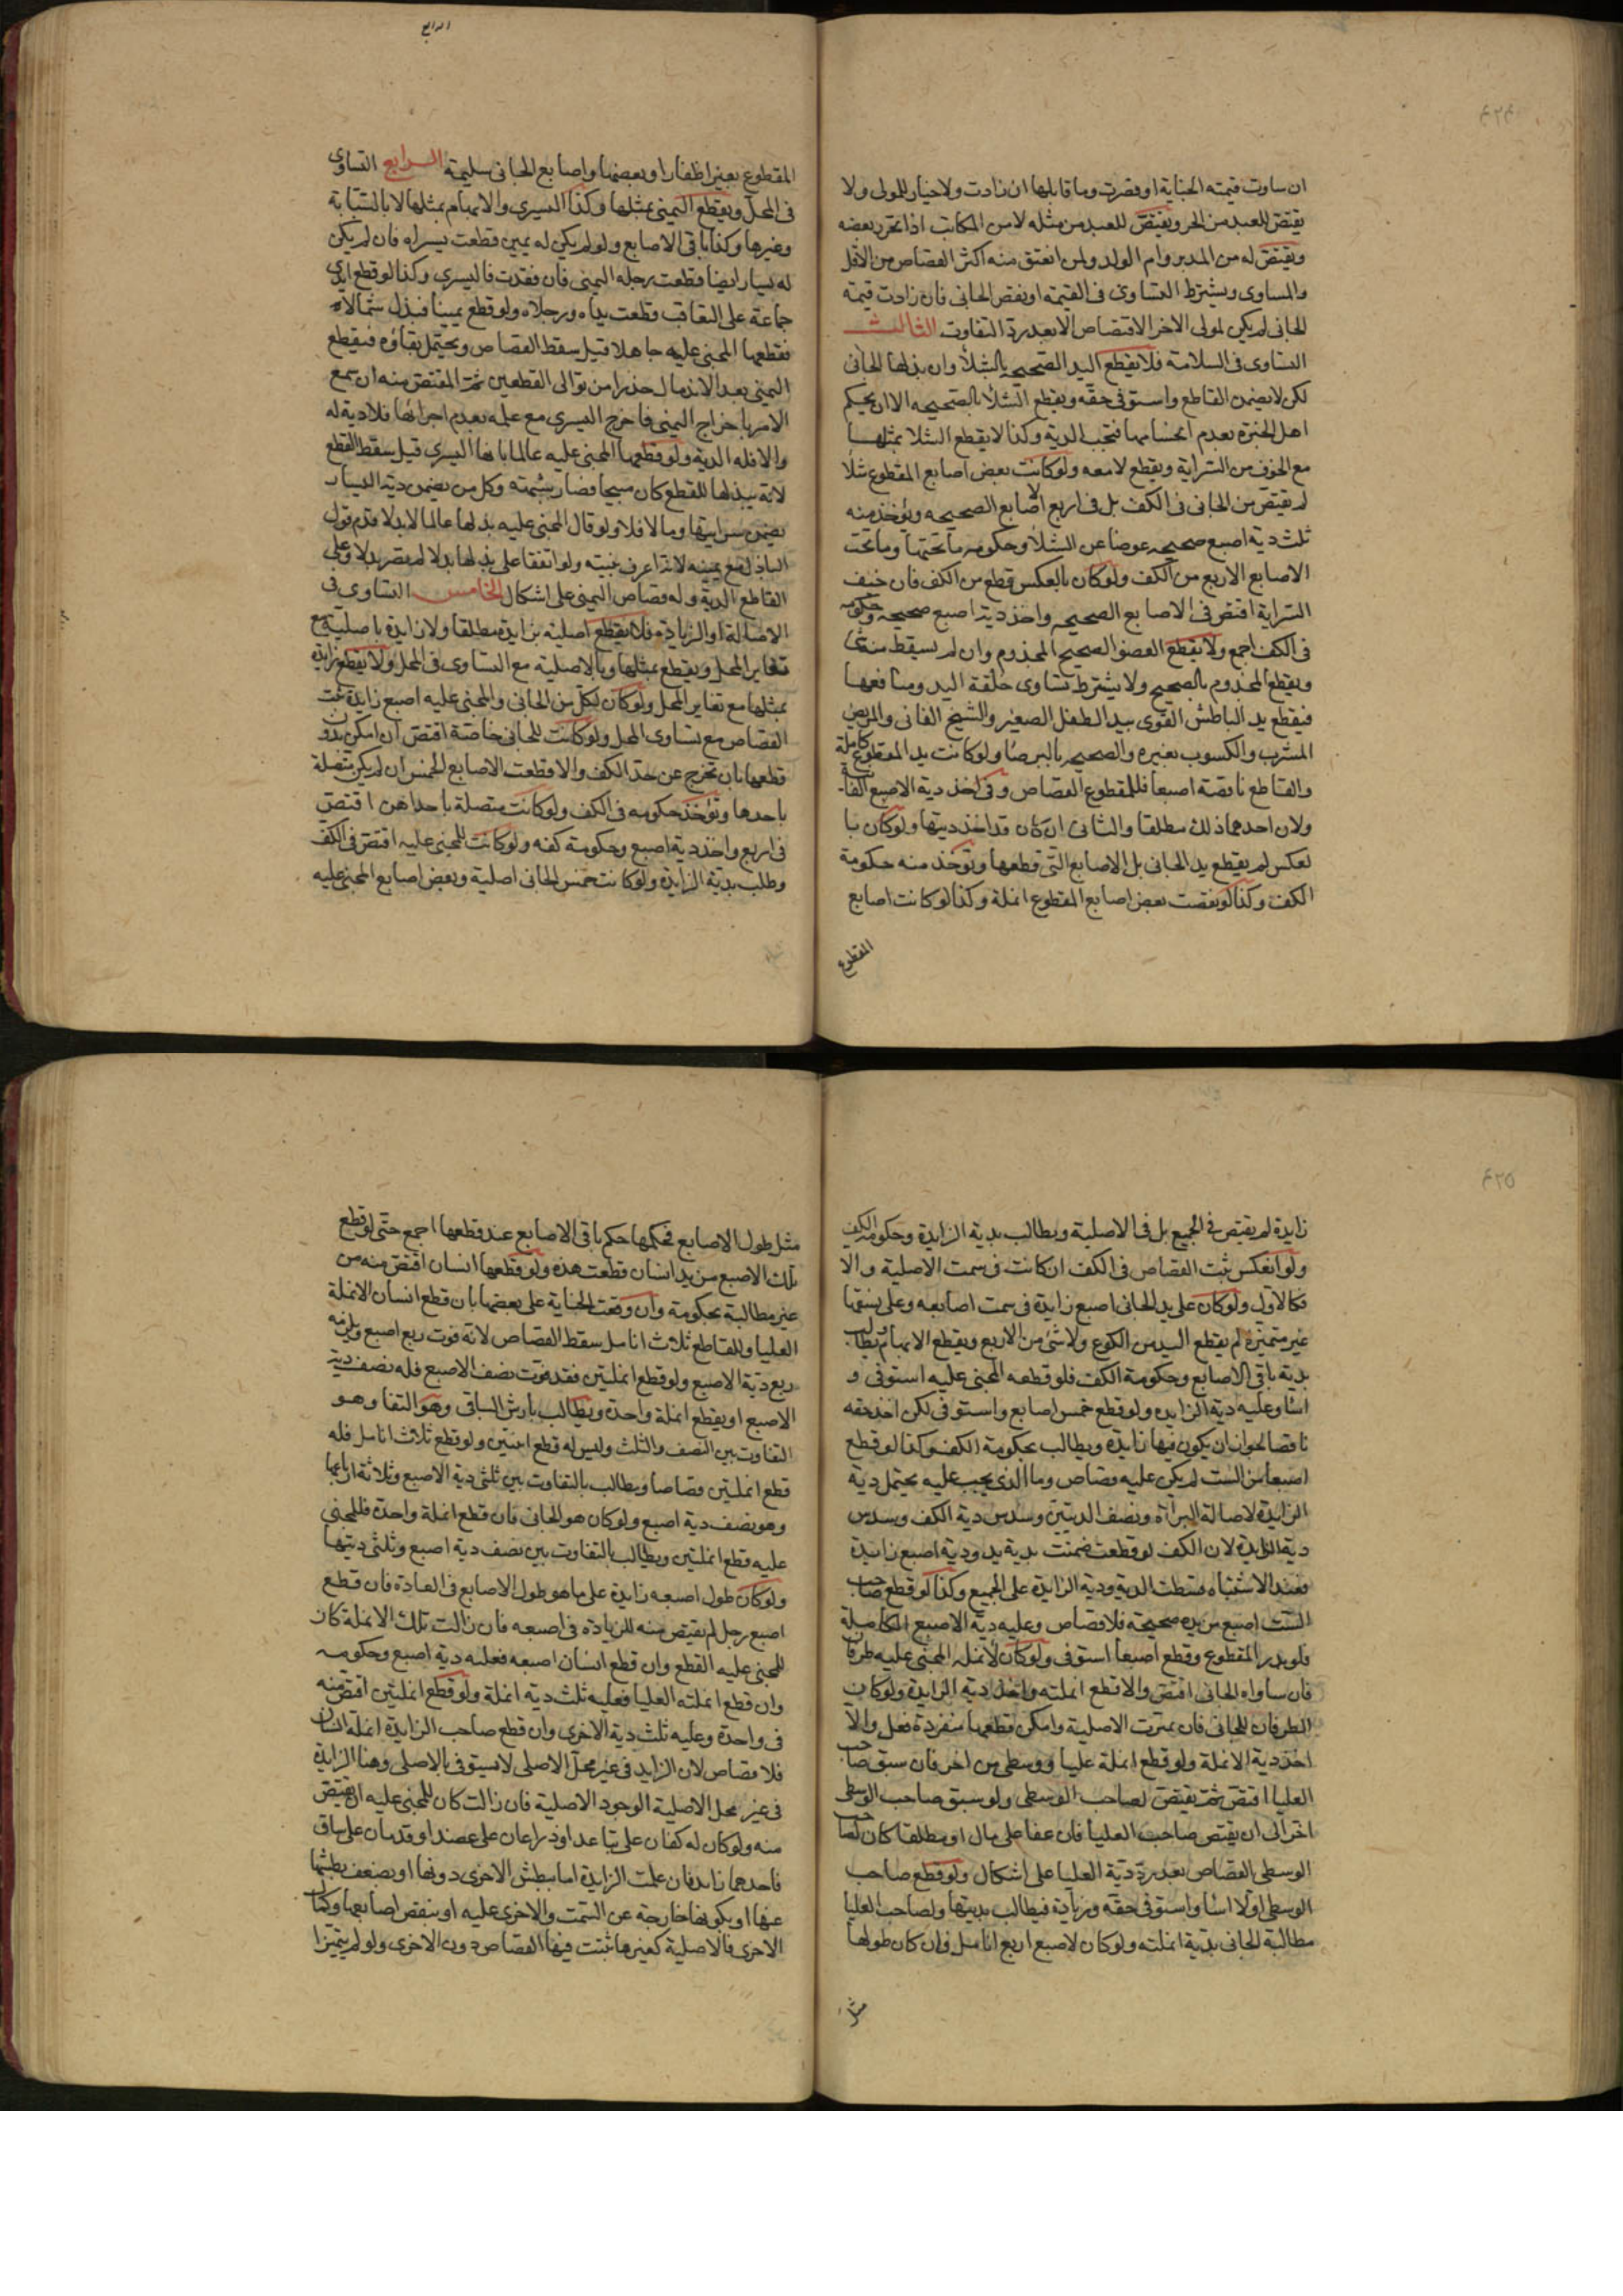 ٤٢٤
ان ساوت قيمته الجناية او قصرت وما قابلها ان زادت ولا خيار للمولى ولا
يقتص للعبد من الحر ويقتص للعبد من مثله لا من المكاتب اذا تحرر بعضه
ويقتص له من المدبر وام الولد ولمن انعتق منه اكثر القصاص من الاقل
والمساوى ويشترط التساوى فى القيمة او نقص الجانى فان زادت قيمة
الجانى لم يكن لمولى الاخر الاقتصاص الا بعد رد التفاوت الثالث
التساوى فى السلامة فلا يقطع اليد الصحيحه بالشلا وان بذلها الجانى
لكن لا يضمن القاطع واستوفى حقه ويقطع الشلا بالصحيحه الا ان يحكم
اهل الخبرة بعدم انحسامها فتجب الدية وكذا لا يقطع الشلا بمثلها
مع الخوف من السراية ويقطع لا معه ولو كانت بعض اصابع المقطوع شلا
لم يقتص من الجانى فى الكف بل فى اربع الاصابع الصحيحه ويؤخذ منه
ثلث دية اصبع صحيحه عوضا عن الشلا وحكومه ما تحتها وما تحت
الاصابع الاربع من الكف ولو كان بالعكس قطع من الكف فان خيف
السراية اقتص فى الاصابع الصحيحه واخذ دية اصبع صحيحه وحكومه
فى الكف اجمع ولا يقطع العضو الصحيح المجذوم وان لم يسقط منه شى
ويقطع المجذوم بالصحيح ولا يشترط تساوى خلقة اليد ومنافعها
فيقطع يد الباطش القوى بيد الطفل الصغير والشيخ الفانى والمريض
المشرب والكسوب بغيره والصحيحه بالبرصا ولو كانت يد المقطوع كاملة
والقاطع ناقصة اصبعا فللمقطوع القصاص وفى اخذ دية الاصبع الفائتة
ولان احدهما ذلك مطلقا والثانى ان كان قد اخذ ديتها ولو كان با
لعكس لم يقطع يد الجانى بل الاصابع التى قطعها وتؤخذ منه حكومة
الكف وكذا لو نقصت بعض اصابع المقطوع انملة وكذا لو كانت اصابع
المقطوع
الرابع
المقطوع بغير اظفار او بعضها واصابع الجانى سليمة الرابع التساوى
فى المحل ويقطع اليمنى بمثلها وكذا اليسرى والابهام بمثلها لا بالسبابة
وغيرها وكذا باقى الاصابع ولو لم يكن له يمين قطعت يسراه فان لم يكن
له يسار ايضا قطعت رجله اليمنى فان فقدت فاليسرى وكذا لو قطع ايدى
جماعة على التعاقب قطعت يداه ورجلاه ولو قطع يمينا فبذل شمالا
فقطعها المجنى عليه جاهلا قيل سقط القصاص ويحتمل بقاؤه فيقطع
اليمنى بعد الاندمال حذرا من توالى القطعين ثم المقتص منه ان سمع
الامر باخراج اليمنى فاخرج اليسرى مع علمه بعدم اجزائها فلا دية له
والا فله الدية ولو قطعها المجنى عليه عالما بانها اليسرى قيل سقط القطع
لانه يبذلها للقطع كان مبيحا فصار شبهة وكل من يضمن دية اليسار
يضمن سرايتها وما لا فلا ولو قال المجنى عليه بذلها عالما لا بدلا قدم قول
الباذل مع يمينه لانه اعرف بنيته ولو اتفقا على بذلها بدلا لم تصر بدلا وعلى
القاطع الدية وله قصاص اليمنى على اشكال الخامس التساوى فى
الاصالة او الزيادة فلا يقطع اصلية بزايدة مطلقا ولا زايدة باصلية مع
تغاير المحل ويقطع بمثلها وبالاصلية مع التساوى فى المحل ولا يقطع زايدة
بمثلها مع تغاير المحل ولو كان لكل من الجانى والمجنى عليه اصبع زايدة ثبت
القصاص مع تساوى المحل ولو كانت للجانى خاصة اقتص ان امكن بدون
قطعها بان تخرج عن حد الكف والا قطعت الاصابع الخمس ان لم يكن متصلة
باحدها وتؤخذ حكومه فى الكف ولو كانت متصلة باحداهن اقتص
فى اربع واخذ دية اصبع وحكومة كفه ولو كانت للمجنى عليه اقتص فى الكف
وطلب بدية الزايدة ولو كانت خمس الجانى اصلية وبعض اصابع المجنى عليه
٤٢٥
زايدة لم يقتص فى الجميع بل فى الاصلية ويطالب بدية الزايدة وحكومه الكف
ولو انعكس ثبت القصاص فى الكف ان كانت فى سمت الاصلية والا
فكالاول ولو كان على يد الجانى اصبع زايدة فى سمت اصابعه وعلى نسقها
غير متميزة لم يقطع اليد من الكوع ولا شئ من الاربع ويقطع الابهام ويطالب
بدية باقى الاصابع وحكومة الكف فلو قطعه المجنى عليه استوفى و
اسا وعليه دية الزايده ولو قطع خمس اصابع واستوفى لكن اخذ حقه
ناقصا لجواز ان يكون فيها زايدة ويطالب بحكومة الكف وكذا لو قطع
اصبعا من الست لم يكن عليه قصاص وما الذى يجب عليه يحتمل دية
الزايدة لاصالة البراة ونصف الديتين وسدس دية الكف وسدس
دية الزايدة لان الكف لو قطعت ضمنت بدية يد ودية اصبع زايدة
فعند الاشتباه قسطت الدية ودية الزايدة على الجميع وكذا لو قطع صاحب
الست اصبع من يده صحيحة فلا قصاص وعليه دية الاصبع الكاملة
فلو بدر المقطوع وقطع اصبعا استوفى ولو كان لانملة المجنى عليه طرفان
فان ساواه الجانى اقتص والا قطع انملته واخذ دية الزايدة ولو كان
الطرفان للجانى فان تميزت الاصلية وامكن قطعها منفردة فعل والا
اخذ دية الانملة ولو قطع انملة عليا ووسطى من اخر فان سبق صاحب
العليا اقتص ثم يقتص لصاحب الوسطى ولو سبق صاحب الوسطى
اخر الى ان يقتص صاحب العليا فان عفا على مال او مطلقا كان لصاحب
الوسطى القصاص بعد رد دية العليا على اشكال ولو قطع صاحب
الوسطى اولا اسا واستوفى حقه وزيادة فيطالب بديتها ولصاحب العليا
مطالبة الجانى بدية انملته ولو كان لاصبع اربع انامل فان كان طولها
مثل
مثل طول الاصابع فحكمها حكم باقى الاصابع عند قطعها اجمع حتى لو قطع
تلك الاصبع من يد انسان قطعت هذه ولو قطعها انسان اقتص منه من
غير مطالبة بحكومة وان وقعت الجناية على بعضها بان قطع انسان الانملة
العليا وللقاطع ثلاث انامل سقط القصاص لانه فوت ربع اصبع ويلزمه
ربع دية الاصبع ولو قطع انملتين فقد فوت نصف الاصبع فله نصف دية
الاصبع او يقطع انملة واحدة ويطالب بارش الباقى وهو التفا وهو
التفاوت بين النصف والثلث وليس له قطع اثنتين ولو قطع ثلاث انامل فله
قطع انملتين قصاصا ويطالب بالتفاوت بين ثلثى دية الاصبع وثلاثة ارباعها
وهو نصف دية اصبع ولو كان هو الجانى فان قطع انملة واحدة فللمجنى
عليه قطع انملتين ويطالب بالتفاوت بين نصف دية اصبع وثلثى ديتها
ولو كان طول اصبعه زايدة على ما هو طول الاصابع فى العادة فان قطع
اصبع رجل لم يقتص منه للزيادة فى اصبعه فان زالت تلك الانملة كان
للمجنى عليه القطع وان قطع انسان اصبعه فعليه دية اصبع وحكومه
وان قطع انملته العليا فعليه ثلث دية انملة ولو قطع انملتين اقتص منه
فى واحدة وعليه ثلث دية الاخرى وان قطع صاحب الزايدة انملة انسان
فلا قصاص لان الزايد فى غير محل الاصلى لا يستوفى بالاصلى وهنا الزايدة
فى غير محل الاصلية الوجود الاصلية فان زالت كان للمجنى عليه ان يقتص
منه ولو كان له كفان على ساعد او ذراعان على عضد او قدمان على ساق
فاحدهما زايد فان علمت الزايدة اما ببطش الاخرى دونها او بضعف بطشها
عنها او بكونها خارجة عن السمت والاخرى عليه او بنقص اصابعها وكمال
الاخرى فالاصلية كغيرها ثبت فيها القصاص دون الاخرى ولو لم يتميزا